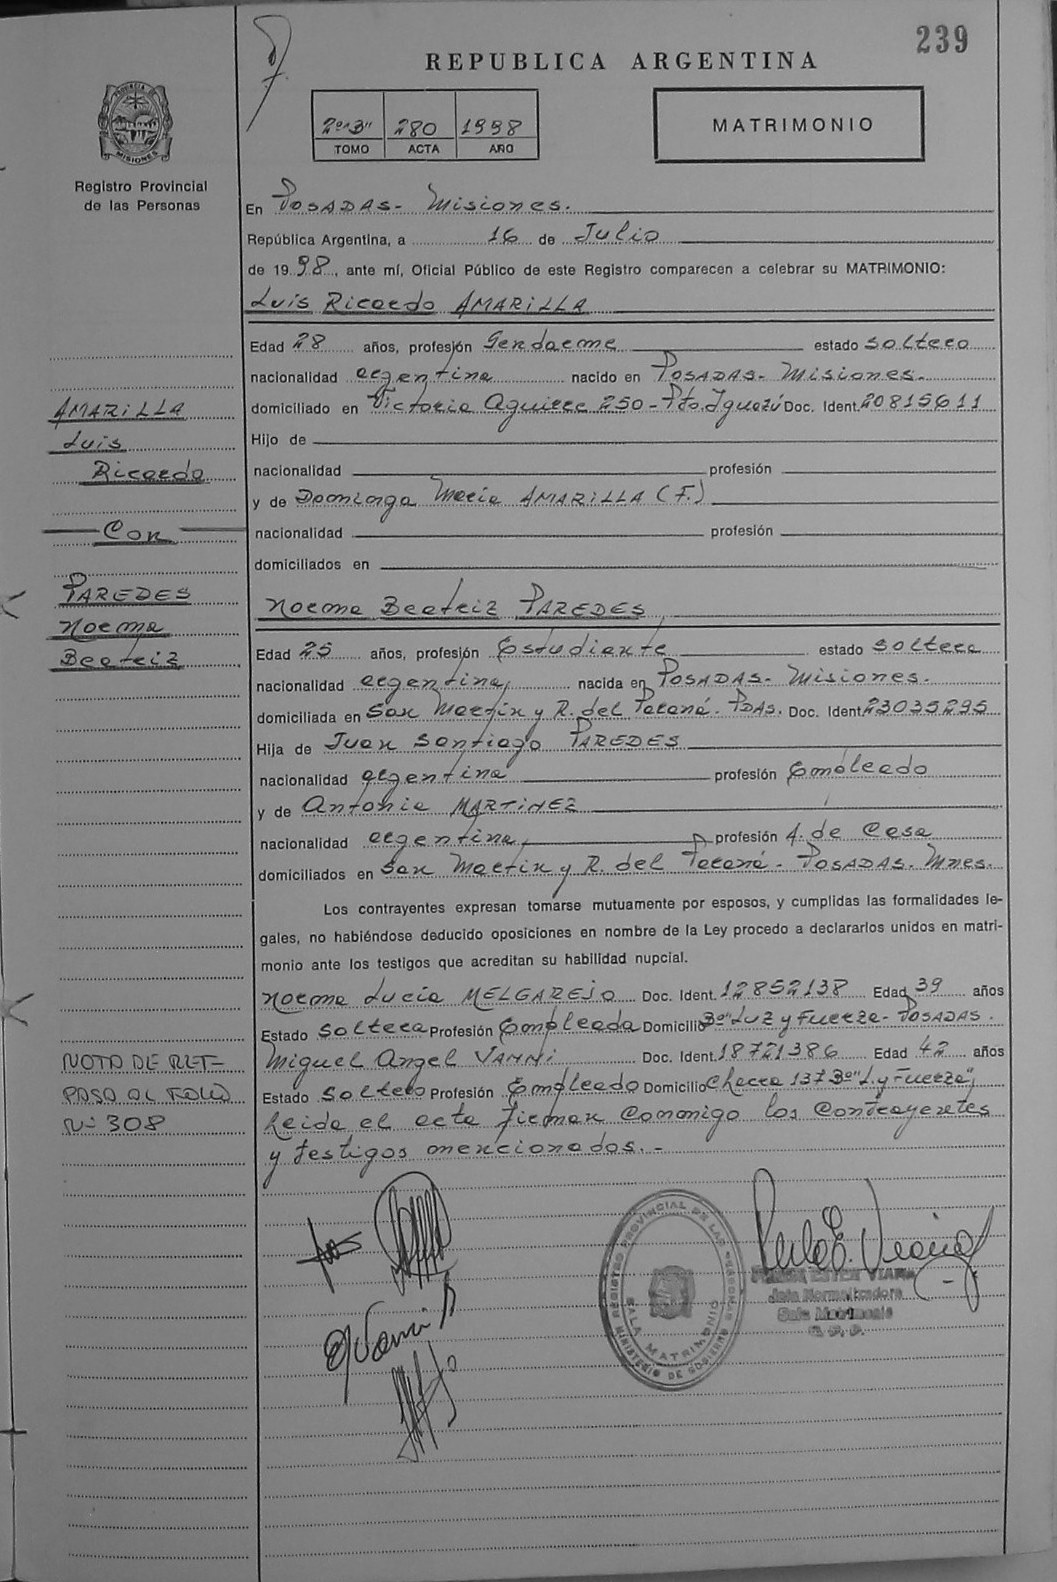 239
REPUBLICA ARGENTINA
2º"B" 280 1998
TOMO ACTA AÑO
MATRIMONIO
PROVINCIA DE MISIONES
Registro Provincial
de las Personas
En POSADAS- Misiones.
República Argentina, a 16 de Julio
de 1998, ante mí, Oficial Público de este Registro comparecen a celebrar su MATRIMONIO:
Luis Ricardo AMARILLA
Edad 28 años, profesión Gendarme estado soltero
nacionalidad argentina nacido en POSADAS- Misiones.
domiciliado en Victoria Aguirre 250-Pto.Iguazú Doc. Ident. 20815611
Hijo de
nacionalidad profesión
y de Dominga María AMARILLA (F.)
nacionalidad profesión
domiciliados en
Norma Beatriz PAREDES
Edad 25 años, profesión Estudiante estado soltera
nacionalidad argentina, nacida en POSADAS- Misiones.
domiciliada en San Martín y R. del Paraná. PDAS. Doc. Ident. 23035295
Hija de Juan Santiago PAREDES
nacionalidad argentina profesión Empleado
y de Antonia MARTINEZ
nacionalidad argentina, profesión A. de Casa
domiciliados en San Martin y R. del Paraná - POSADAS. Mnes.
Los contrayentes expresan tomarse mutuamente por esposos, y cumplidas las formalidades le-
gales, no habiéndose deducido oposiciones en nombre de la Ley procedo a declararlos unidos en matri-
monio ante los testigos que acreditan su habilidad nupcial.
Norma Lucía MELGAREJO Doc. Ident. 12852138 Edad 39 años
Estado soltera Profesión Empleada Domicilio Bº"Luz y Fuerza- POSADAS.
Miguel Angel VANNI Doc. Ident. 18721386 Edad 42 años
Estado soltero Profesión Empleado Domicilio Chacra 137 Bº"L.y Fuerza",
Leida el acta firman conmigo los contrayentes
y testigos mencionados.-
AMARILLA
Luis
Ricardo
Con
PAREDES
Norma
Beatriz
NOTA DE RET-
PASA AL FOLIO
Nº 308
REGISTRO PROVINCIAL DE LAS PERSONAS
SALA MATRIMONIO
MINISTERIO DE GOBIERNO
ESTER VIANA
Jefa Normalizadora
Sala Matrimonio